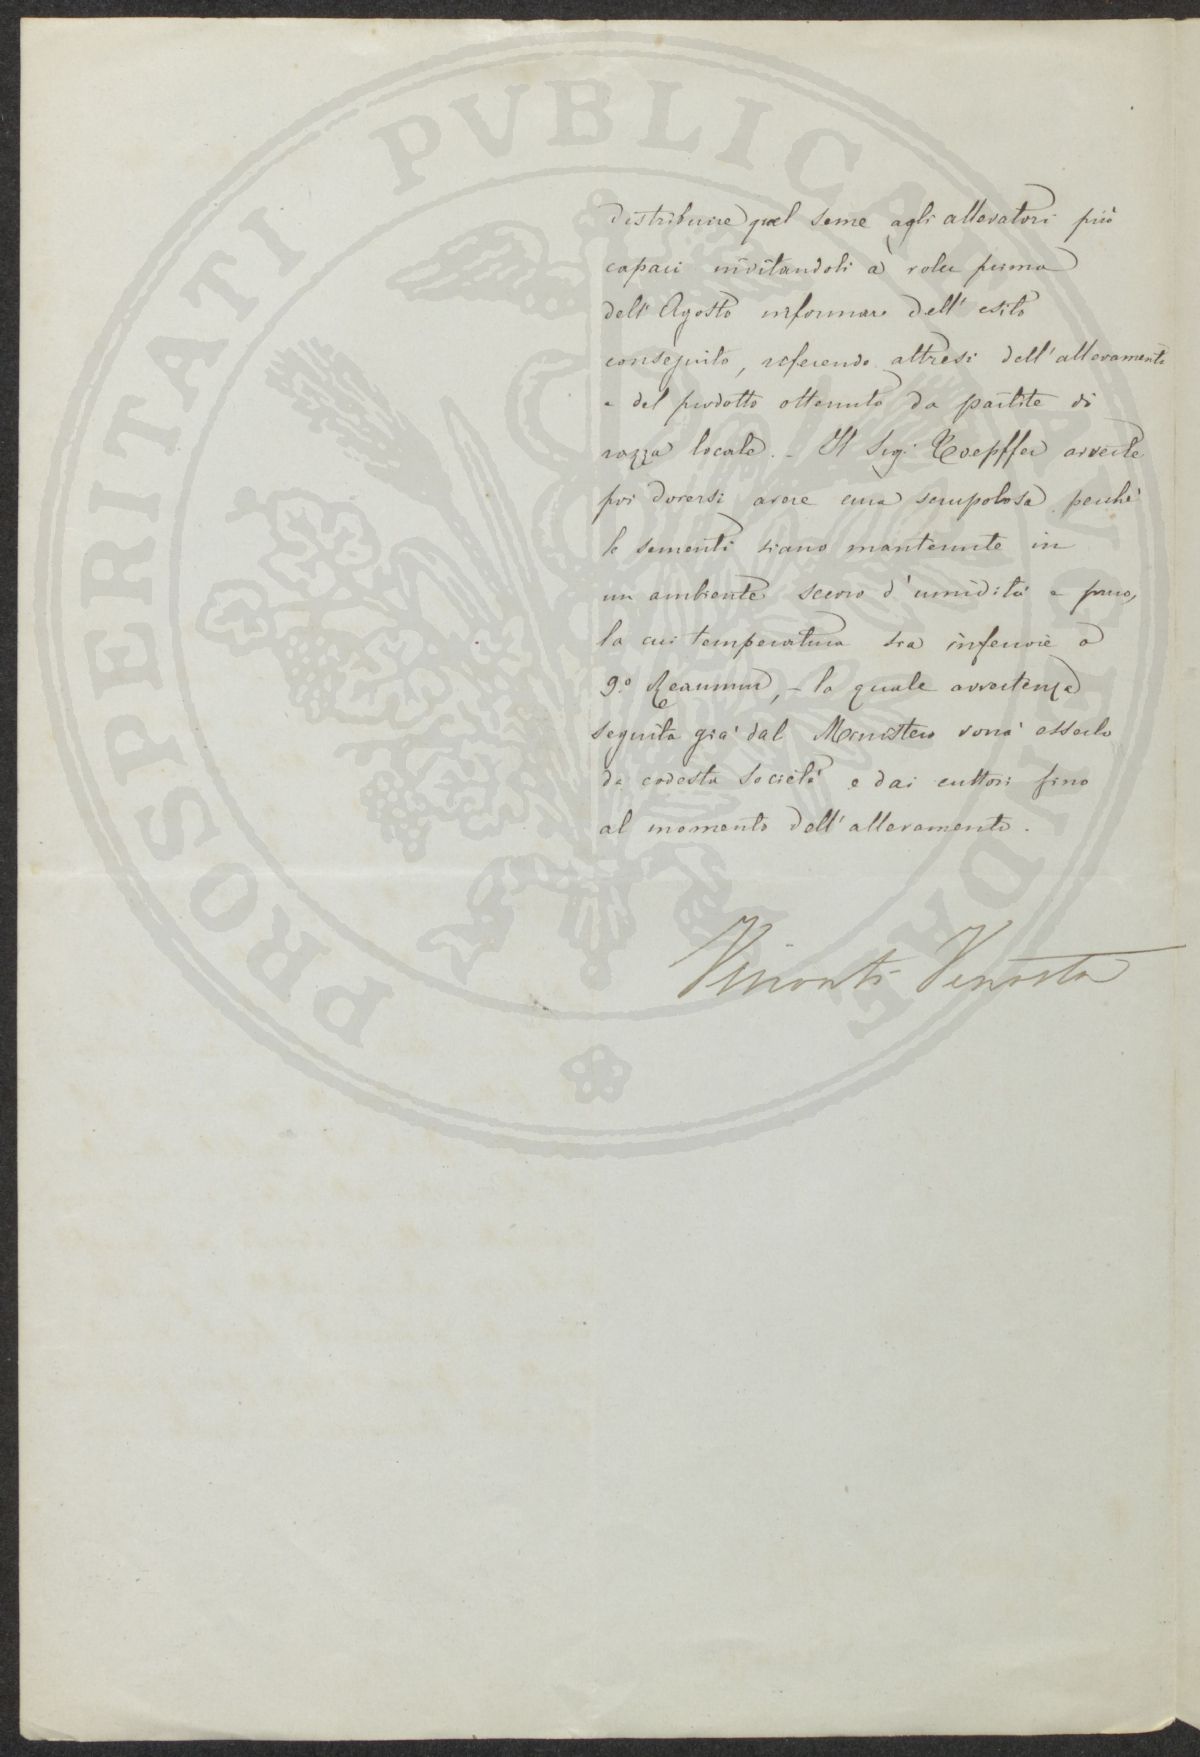 PROSPERITATI PVBLICAE AVGENDAE
distribuire quel seme agli allevatori più
capaci invitandoli a voler prima
dell' Agosto informare dell' esito
conseguito, riferendo altresi dell' allevamento
e del prodotto ottenuto da partite di
razza locale. - Il Sig.r Toepffer avverte
poi doversi avere cura scrupolosa perchè
le sementi siano mantenute in
un ambiente scevro d' umidità e puro,
la cui temperatura sia inferiore a
9.º Reaumur, - la quale avvertenza
seguita gia' dal Ministero vorrà esserlo
da codesta Società e dai cultori fino
al momento dell' allevamento.
Visconti Venosta